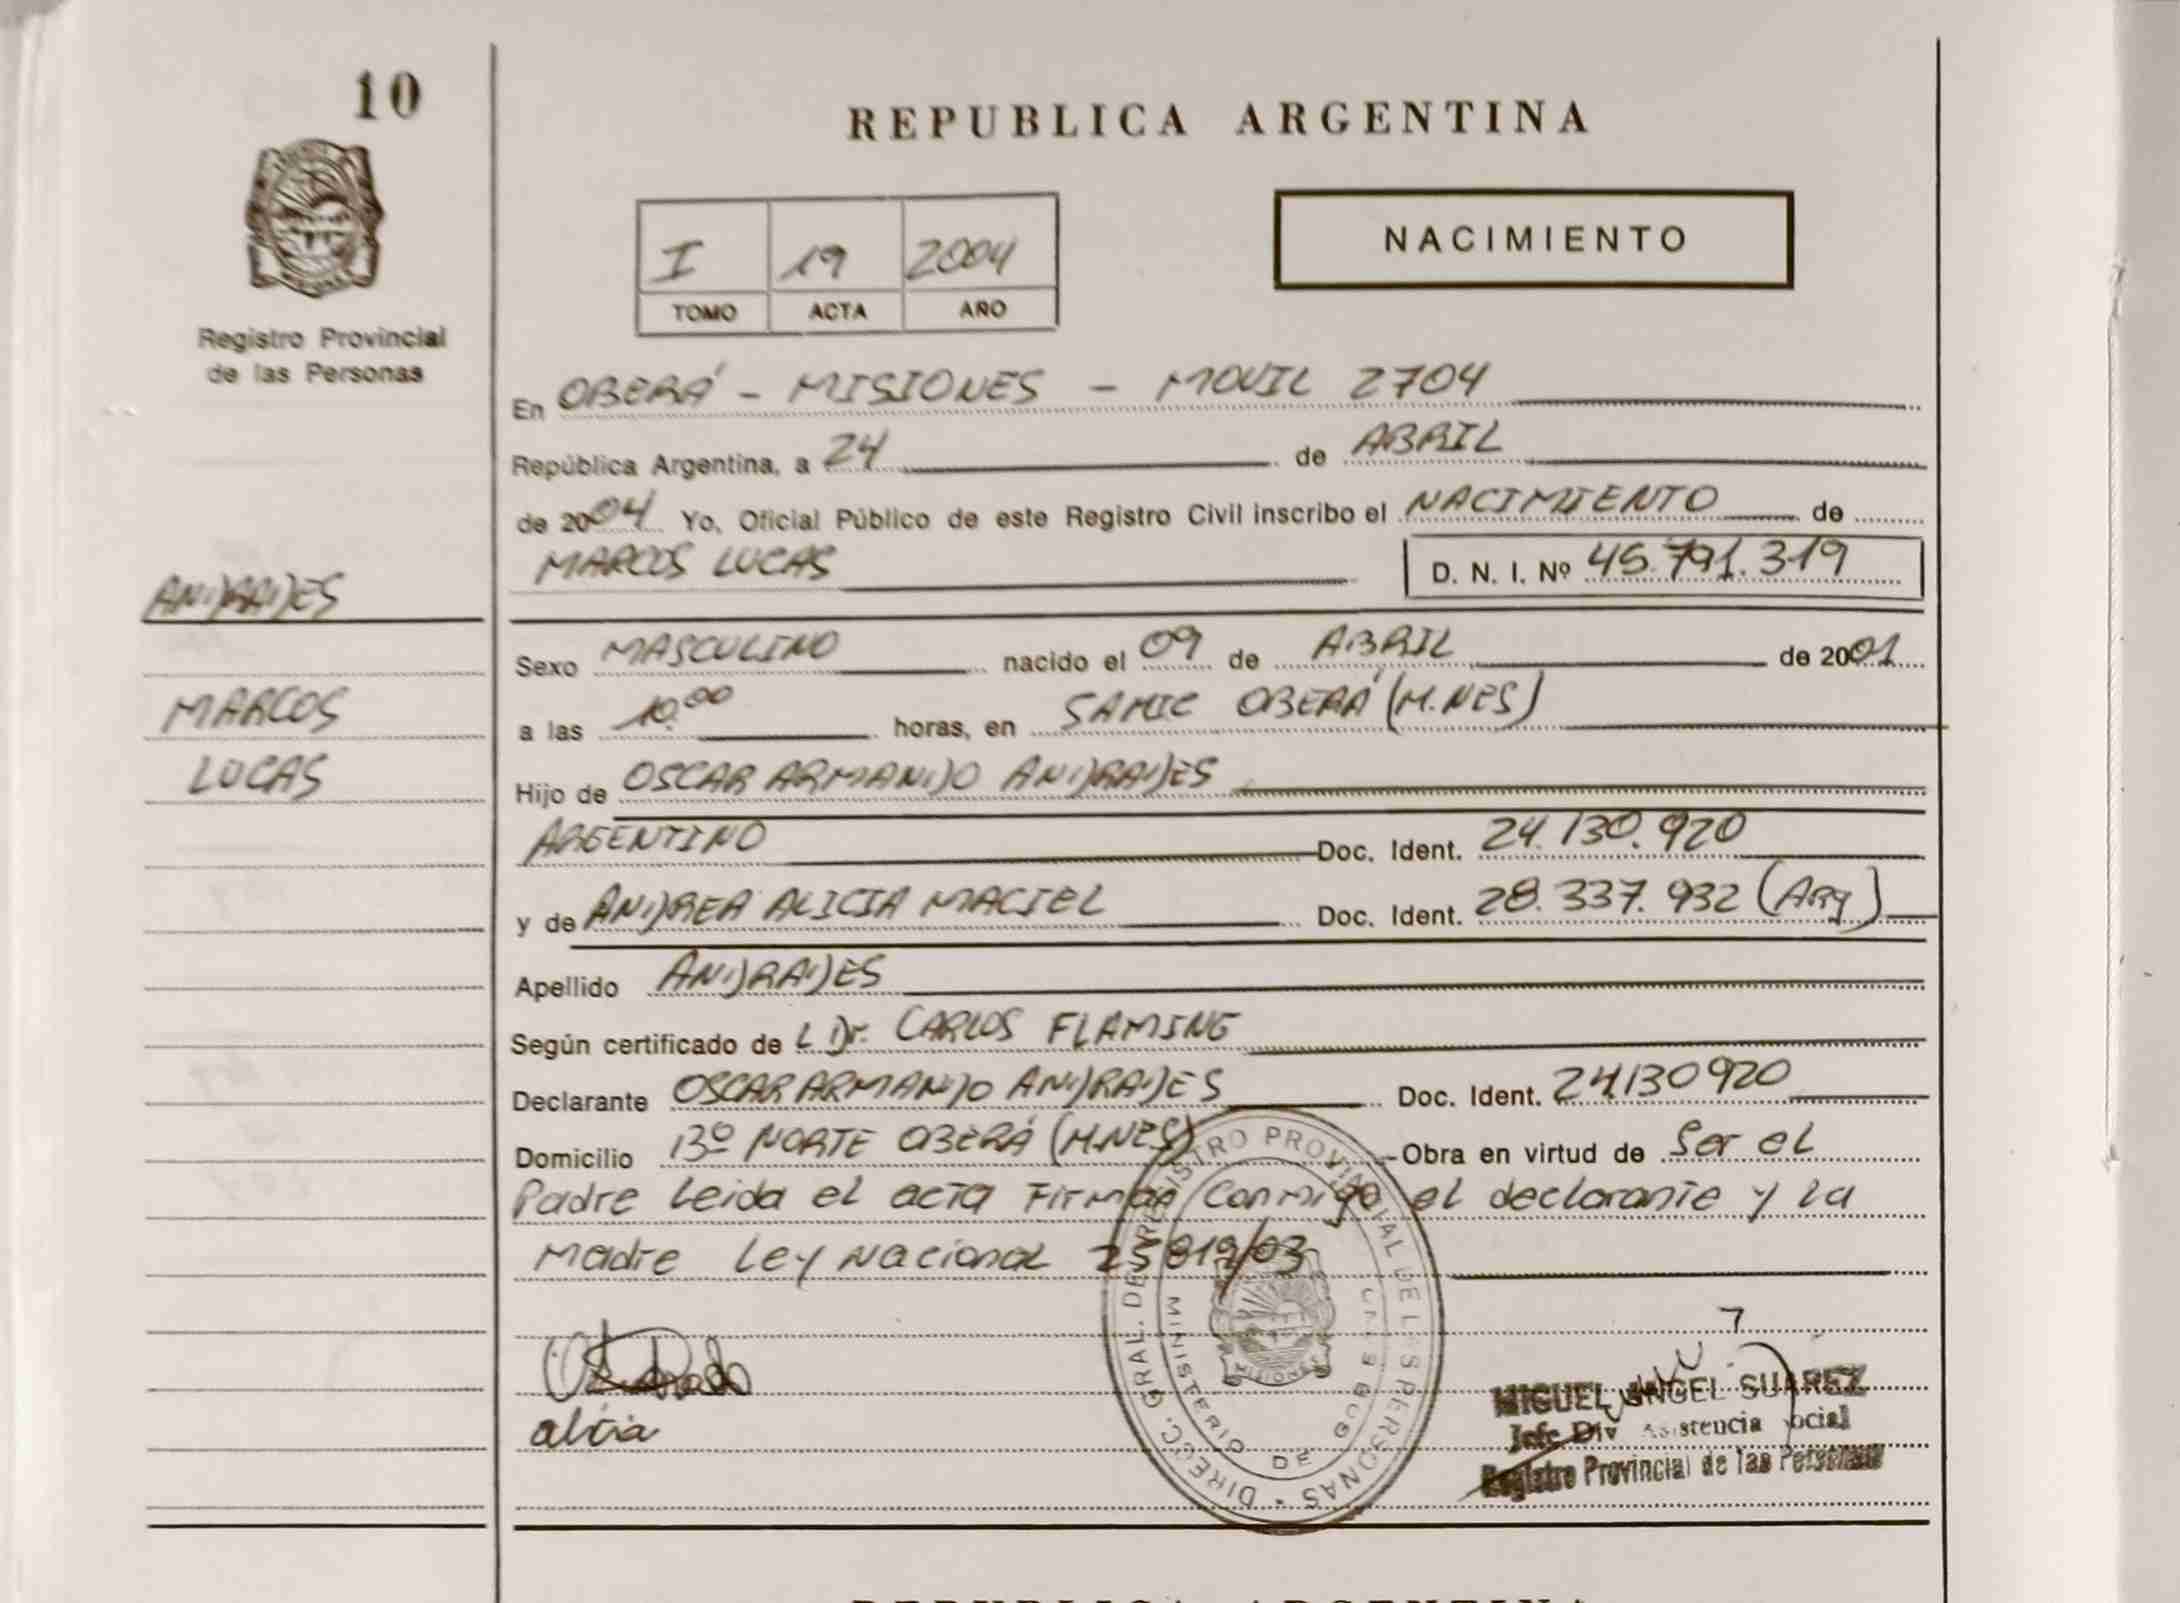 10
Registro Provincial
de las Personas
ANDRADES
MARCOS
LUCAS
REPUBLICA ARGENTINA
I 19 2004
TOMO ACTA AÑO
NACIMIENTO
En OBERÁ - MISIONES - MOVIL 2704
República Argentina, a 24 de ABRIL
de 2004 Yo, Oficial Público de este Registro Civil inscribo el NACIMIENTO de
MARCOS LUCAS D. N. I. Nº 45.791.319
Sexo MASCULINO nacido el 09 de ABRIL de 2001
a las 10.00 horas, en SAMIC OBERÁ (M.NES)
Hijo de OSCAR ARMANDO ANDRADES
ARGENTINO Doc. Ident. 24.130.920
y de ANDREA ALICIA MACIEL Doc. Ident. 28.337.932 (Arg)
Apellido ANDRADES
Según certificado de L Dr. CARLOS FLAMING
Declarante OSCAR ARMANDO ANDRADES Doc. Ident. 24130920
Domicilio Bº NORTE OBERÁ (M.NES) Obra en virtud de Ser el
Padre Leida el acta Firman Conmigo el declarante y la
Madre Ley Nacional 25819/03
DIRECC. GRAL. DEL REGISTRO PROVINCIAL DE LAS PERSONAS
MINISTERIO DE GOB
MISIONES
alicia
MIGUEL ANGEL SUAREZ
Jefe Div Asistencia Social
Registro Provincial de las Personas
REPUBLICA ARGENTINA